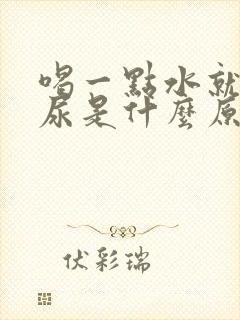 喝一點水就
尿是什麼原
伏彩瑞